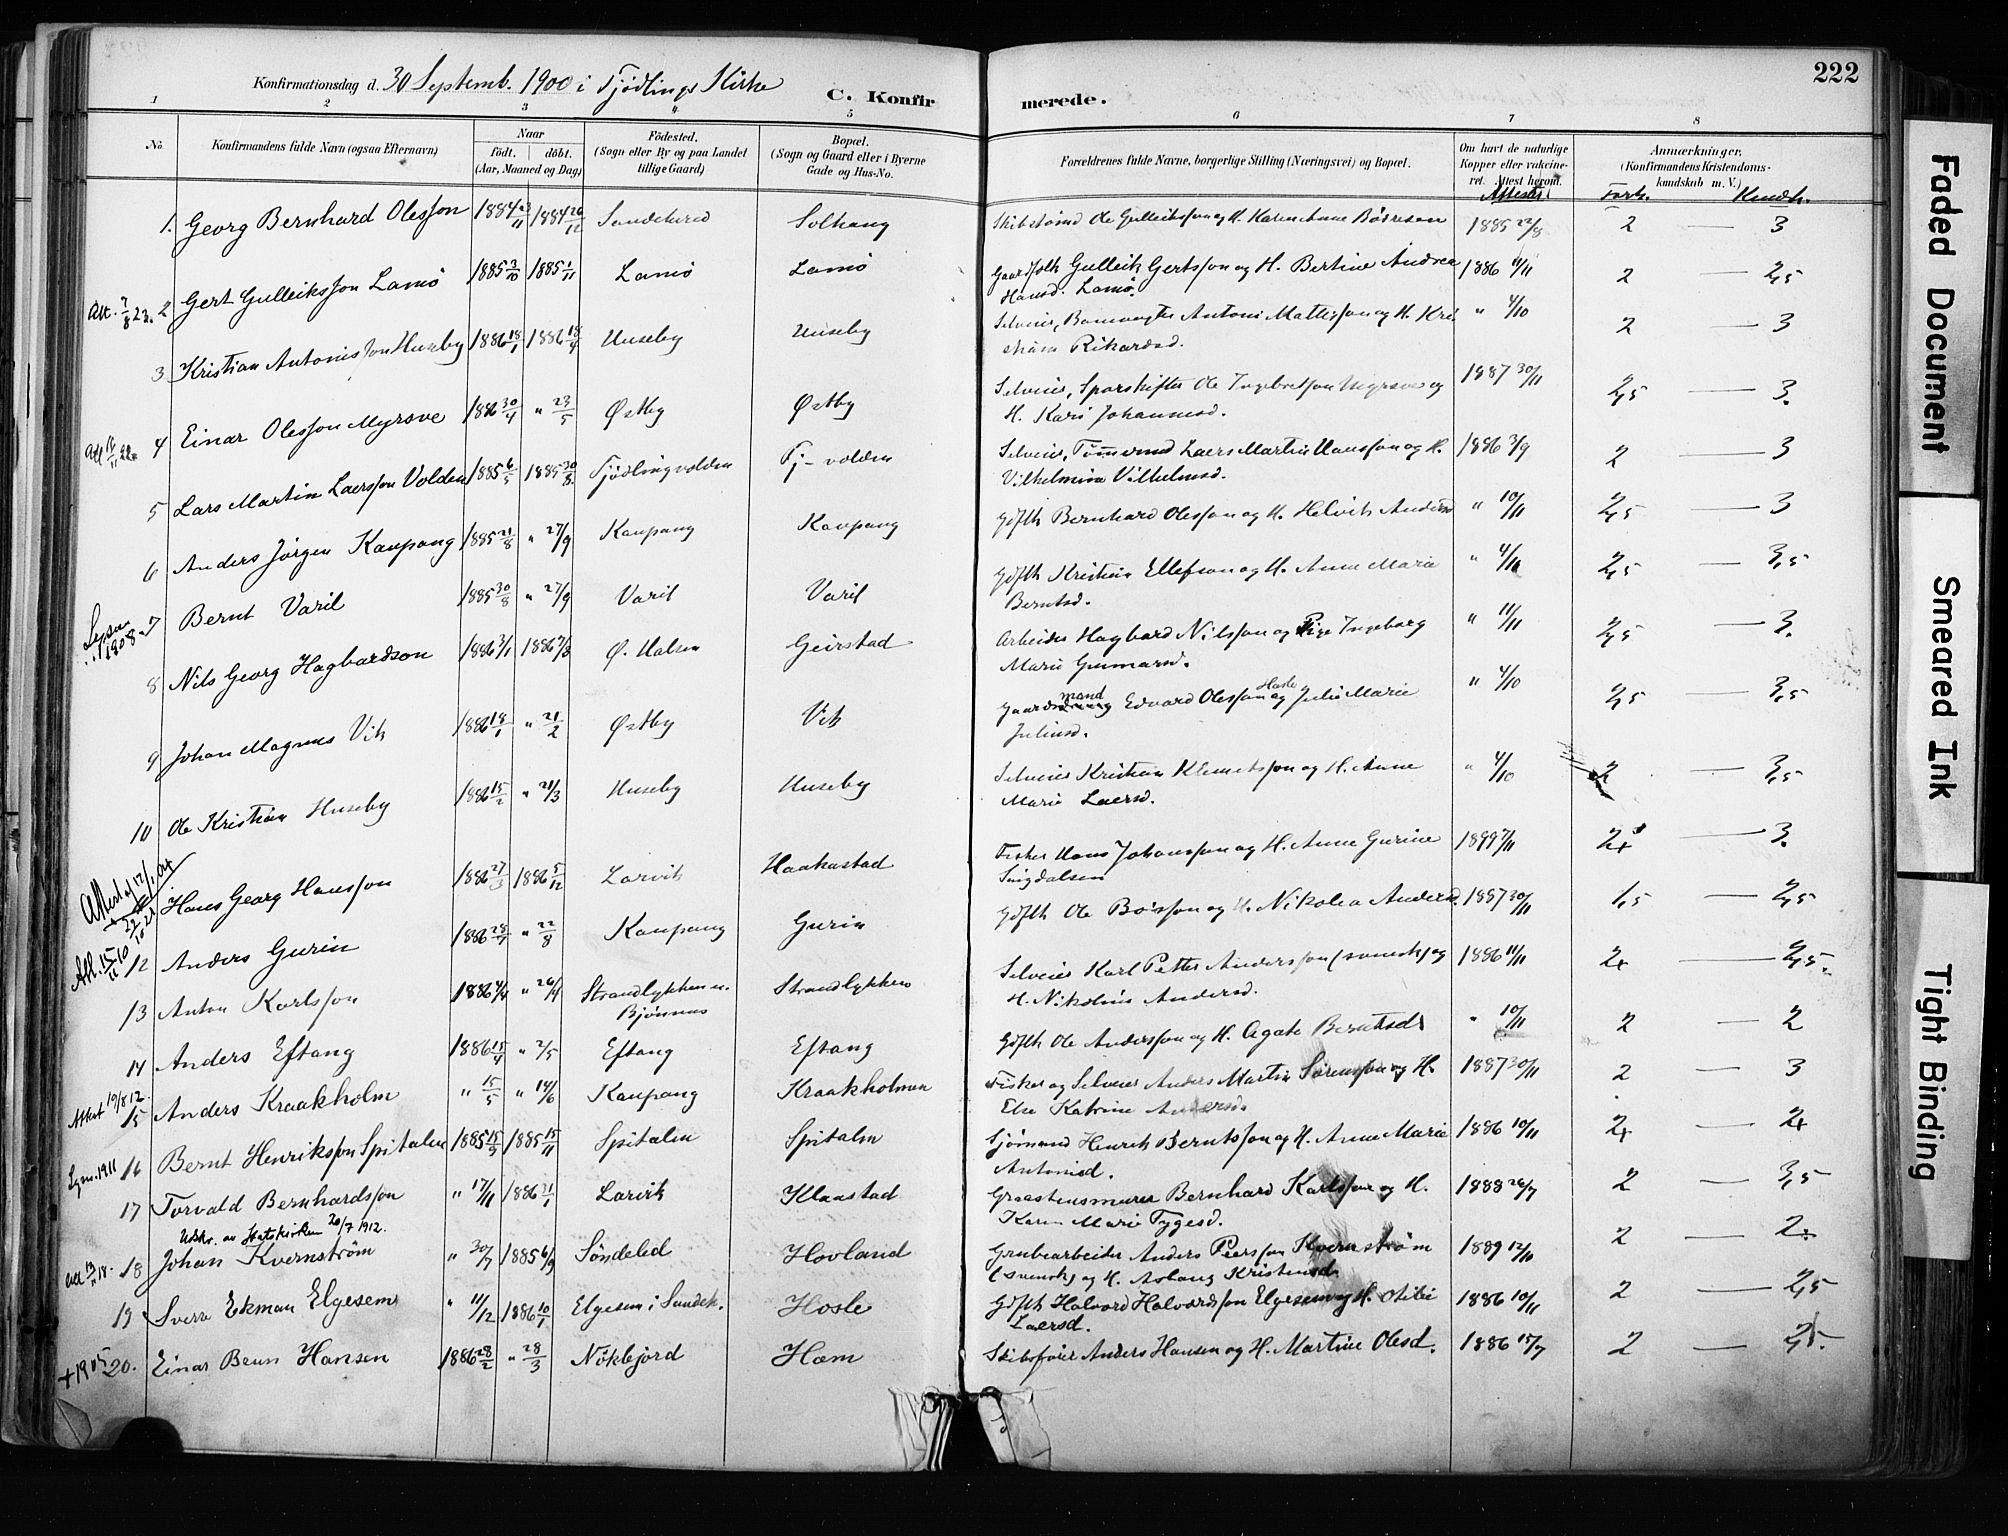 222
Konfirmationsdag d. 30 Septemb. 1900 i Tjødlings Kirke C. Konfirmerede.
1 2 3 4 5 6 7 8
No. Konfirmandens fulde Navn (ogsaa Efternavn) Naar født. døbt. (Aar, Maaned og Dag) Födested. (Sogn eller By og paa Landet tillige Gaard) Bopæl. (Sogn og Gaard eller i Byerne Gade og Hus-No. Forældrenes fulde Navne, borgerlige Stilling (Næringsvei) og Bopæl. Om havt de naturlige Kopper eller vakcineret. Attest herom. Anmærkninger. (Konfirmandens Kristendomskundskab m. V.)
Attester Forh. Kundsk.
1. Georg Bernhard Olesson 1884 23/11 1884 26/12 Sandeherred Solhaug Skibstømd Ole Gulleiksson og H. Karen Anne Børresen 1885 22/8 2 — 3
Att. 7/8 23. 2 Gert Gulleiksson Lamø 1885 3/10 1885 1/11 Lamø Lamø Gaardfolk Gulleik Gertsson og H. Bertine Andrea Hansd. Lamø. 1886 11/11 2 — 2,5
3 Kristian Antonisson Huseby 1886 18/1 1886 18/4 Huseby Huseby Selveier, Banevogter Antoni Mattisson og H. Kristiane Rikardsd. " 4/10 2 — 3
4 Einar Olesson Myrsve 1886 30/4 " 23/5 Østby Østby Selveier, Sporskifter Ole Ingebretson Myrsve og H. Kari Johannesd. 1887 30/11 2,5 — 3.
5 Lars Martin Laersson Volden 1885 6/5 1885 30/8 Tjødlingvolden Tj-volden Selveier, Tømmermd Laers Martin Hansson og H. Vilhelmine Vilhelmsd. 1886 3/9 2 — 3
6 Anders Jørgen Kaupang 1885 21/8 " 27/9 Kaupang Kaupang Gdfolk Bernhard Olesson og H. Helvik Andersd " 10/11 2,5 — 3
1908 7 Bernt Varil 1885 30/8 " 27/9 Varil Varil Gdfolk Kristian Ellefson og H. Anne Marie Berntsd. " 4/10 2,5 — 3,5
8 Nils Georg Hagbardson 1886 3/1 1886 7/3 Ø. Halsen Geirstad Arbeider Hagbard Nilsson og Pige Ingeborg Marie Gunnarsd. " 11/11 2,5 — 3.
9 Johan Magnus Vik 1886 18/1 " 21/2 Østby Vik Gaardmand Edvard Olesson Hasle og Julie Marie Juliusd. " 4/10 2,5 — 3,5
10 Ole Kristian Huseby 1886 15/2 " 21/3 Huseby Huseby Selveier Kristian Klemetsson og H. Anne Marie Laersd. " 4/10 2 — 3,5
Hans Georg Hansson 1886 27/3 1886 5/12 Larvik Haakastad Fisker Hans Johansson og H. Anne Gurine Smigdalsen 1899 7/11 2+ — 3.
Att. 15/11 10 12 Anders Gurin 1886 28/7 " 22/8 Kaupang Gurin Gdfolk Ole Boisson og H. Nikolea Andersd. 1887 30/11 1,5 — 2,5
13 Anton Karlsson 1886 4/4 " 26/4 Strandlykken u. Bjønnes Strandlykken Selveier Karl Petter Andersson (svensk) og H. Nikoline Andersd. 1886 11/11 2+ — 2,5.
14 Anders Eftang 1886 15/4 " 2/5 Eftang Eftang Gdfolk Ole Andersson og H. Agate Berntsd. " 10/11 2 — 2
Attest 19/8 12. 15 Anders Kraakholm " 15/5 " 14/6 Kaupang Kraakholmen Fisker og Selveier Anders Martin Sørensson og H. Else Katrine Andersd. 1887 30/11 2 — 3
Lysn. 1911 16 Bernt Henriksson Spitalen 1885 15/9 1885 15/11 Spitalen Spitalen Sjømand Henrik Berntsson og H. Anne Marie Antonisd. 1886 10/11 2+ — 2+
17 Torvald Bernhardsson " 17/11 1886 21/1 Larvik Klaastad Graastensmurer Bernhard Karlsson og H. Karen Marie Tygesd. 1888 26/7 2 — 3,5
Udskr. av Statskirken 20/7 1912.
Att 13/11 18. 18 Johan Kvernstrøm " 30/7 1885 6/9 Søndeled Hovland Grubearbeider Anders Peersson Kvernstrøm (svensk) og H. Aslaug Kristensd. 1889 12/11 2 — 2.
19 Sverre Ekman Elgesem " 11/12 1886 10/1 Elgesem i Sandeh. Hosle Gdfolk Halvard Halvardsson Elgesem og H. Otilie Laersd. 1886 10/11 2 — 2,5
+ 1905 20. Einar Brun Hansen 1886 28/2 " 28/3 Nøklejord Hem Skibsfører Anders Hansen og H. Martine Olesd. 1886 15/7 2 — 2,5.
Faded Document
Smeared Ink
Tight Binding